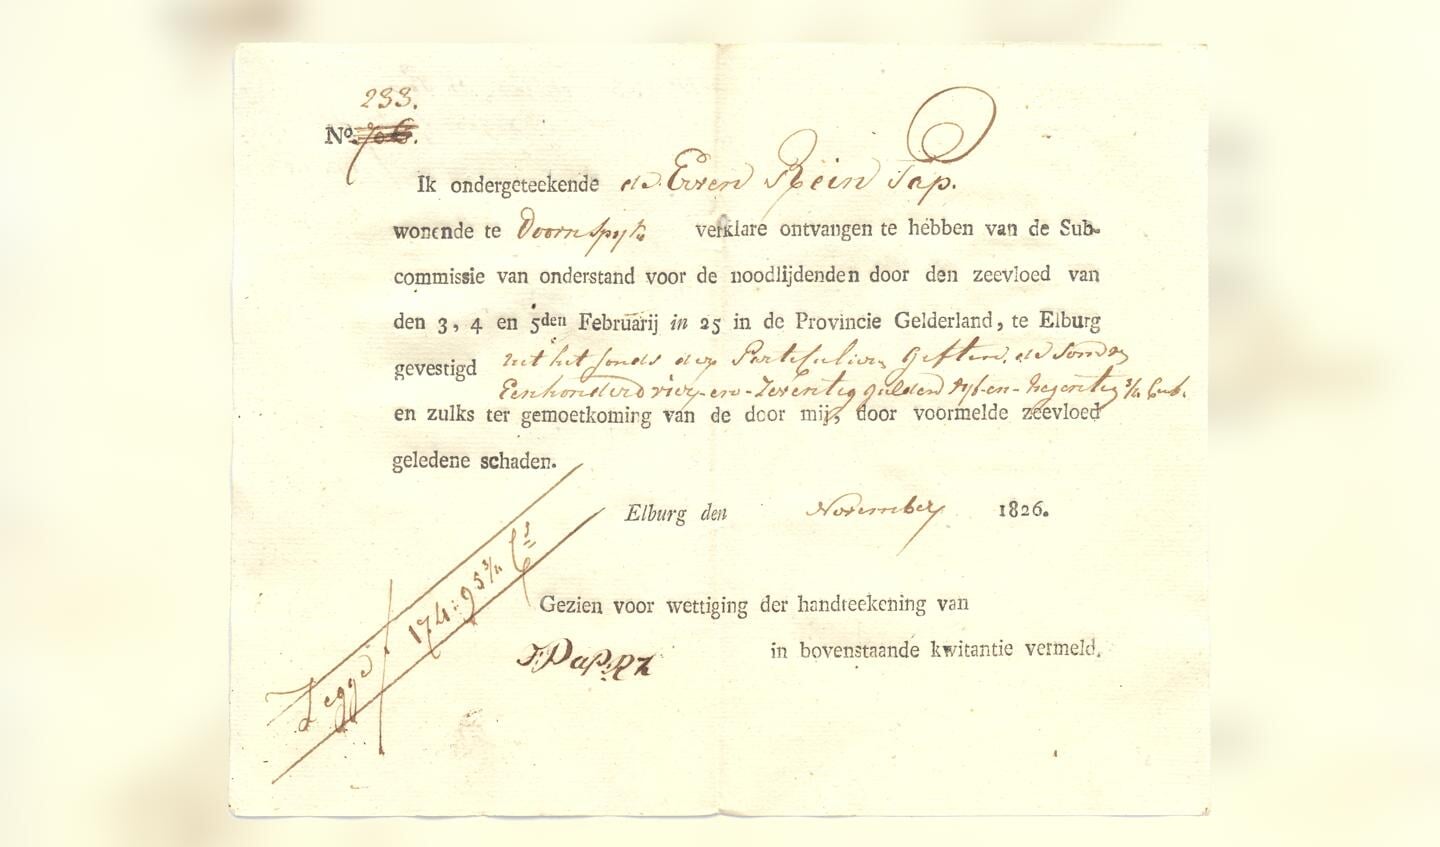 233.
No. 706.
Ik ondergeteekende de Erven Rein Pap.
wonende te Doornspyk verklare ontvangen te hebben van de Sub-
commissie van onderstand voor de noodlijdenden door den zeevloed van
den 3, 4 en 5den Februarij in 25 in de Provincie Gelderland, te Elburg
gevestigd uit het fonds der Partikuliere Giften, de Somma
Eenhonderd vier-en-Zeventig gulden vyf-en-Negentig 3/4 Cent.
en zulks ter gemoetkoming van de door mij, door voormelde zeevloed
geledene schaden.
Elburg den November 1826.
Zegge ƒ 174:95 3/4 Cs
Gezien voor wettiging der handteekening van
in bovenstaande kwitantie vermeld.
Pap Rz